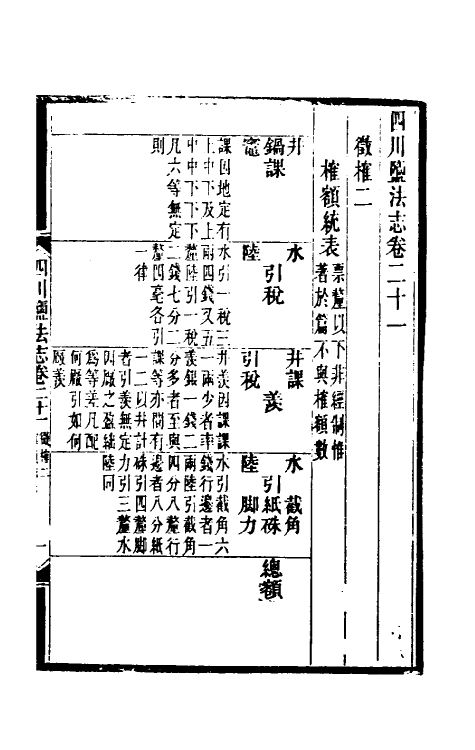 四川鹽法志卷二十一
徵榷二
榷額統表
票釐以下非經制惟
著於篇不與榷額數
井
鍋課
竈
課因地定有
上中下及上
中中下下下
凡六等無定
則
水
引稅
陸
水引一稅三
兩四錢又五
釐陸引一稅
二錢七分二
釐四毫各引
一律
井課
羨
引稅
井羨因課課
一兩少者率
羨銀一錢二
分多者至與
課等亦間有
一二以井計
者引羨無定
因厰之盈絀
爲等差凡配
何厰引如何
厰羨
水 截角
引紙硃
陸 脚力
水引截角六
錢行邊者一
兩陸引截角
四分八釐行
邊者八分紙
硃引四釐脚
力引三釐水
陸同
總額
四川鹽法志卷二十一 徵榷二
一